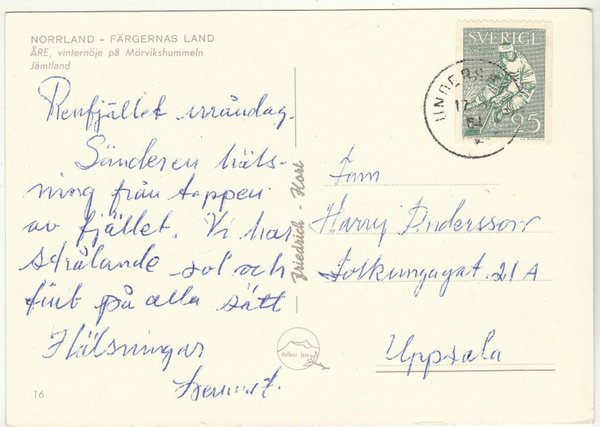 NORRLAND – FÄRGERNAS LAND
ÅRE, vinternöje på Mörvikshummeln
Jämtland
Renfjället måndag.
Sänder en häls-
ning från toppen
av fjället. Vi har
strålande sol och
fint på alla sätt
Hälsningar
16
Friedrich - Kort
Hallens foto
SVERIGE
25
UNDERSÅKER
Fam
Harry Andersson
Folkungagat. 21 A
Uppsala